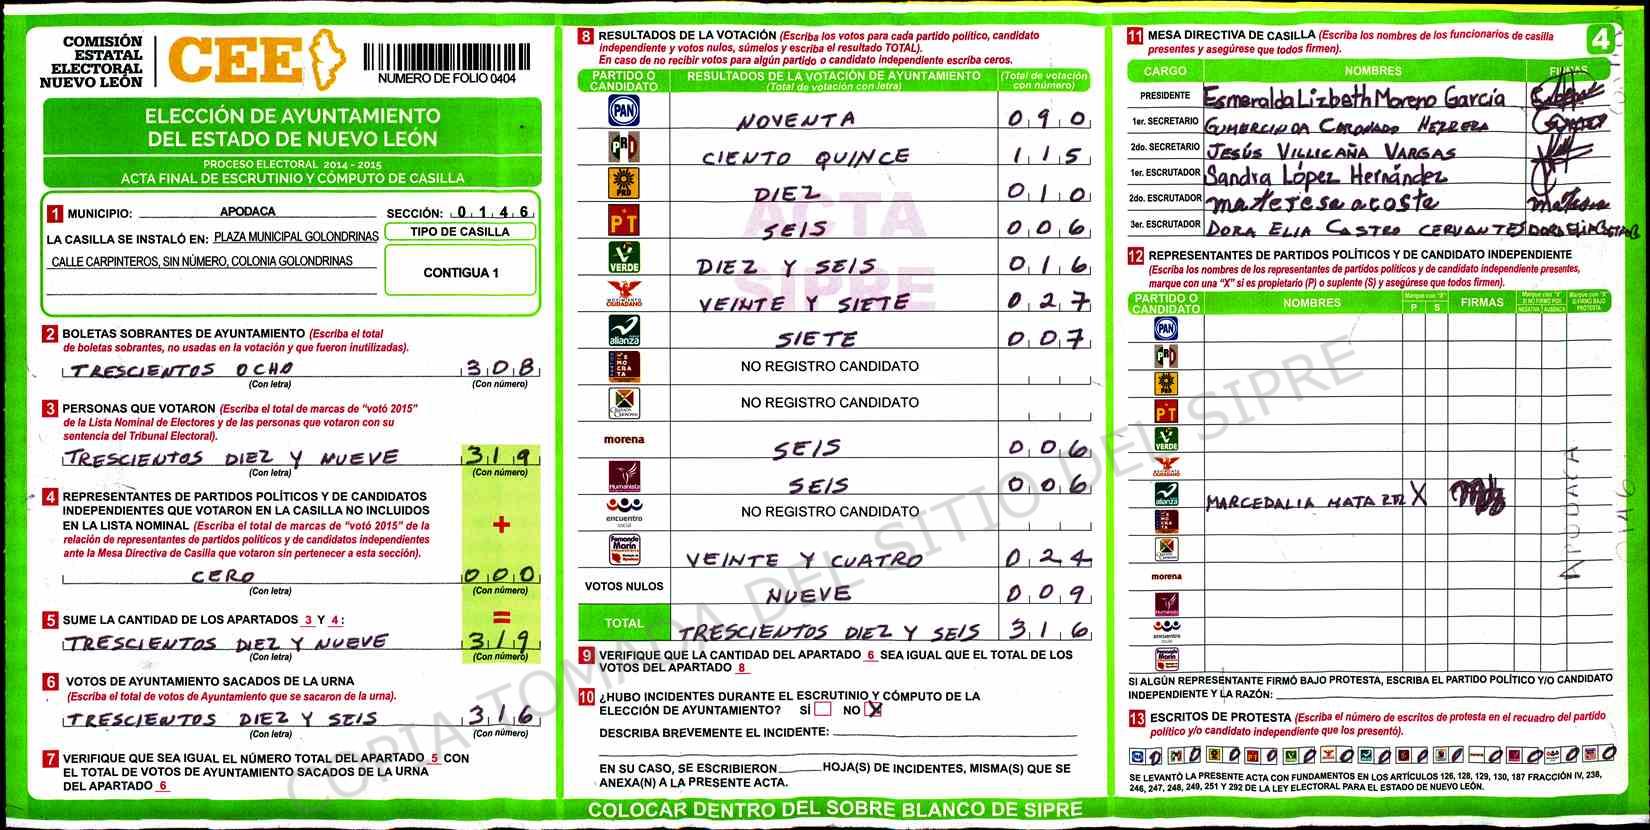 COMISIÓN
ESTATAL
ELECTORAL
NUEVO LEÓN
CEE
NUMERO DE FOLIO 0404
ELECCIÓN DE AYUNTAMIENTO
DEL ESTADO DE NUEVO LEÓN
PROCESO ELECTORAL 2014 - 2015
ACTA FINAL DE ESCRUTINIO Y CÓMPUTO DE CASILLA
1 MUNICIPIO: APODACA SECCIÓN: 0146
LA CASILLA SE INSTALÓ EN: PLAZA MUNICIPAL GOLONDRINAS
CALLE CARPINTEROS, SIN NÚMERO, COLONIA GOLONDRINAS
TIPO DE CASILLA
CONTIGUA 1
2 BOLETAS SOBRANTES DE AYUNTAMIENTO (Escriba el total
de boletas sobrantes, no usadas en la votación y que fueron inutilizadas).
TRESCIENTOS OCHO 308
(Con letra) (Con número)
3 PERSONAS QUE VOTARON (Escriba el total de marcas de "votó 2015"
de la Lista Nominal de Electores y de las personas que votaron con su
sentencia del Tribunal Electoral).
TRESCIENTOS DIEZ Y NUEVE 319
(Con letra) (Con número)
4 REPRESENTANTES DE PARTIDOS POLÍTICOS Y DE CANDIDATOS
INDEPENDIENTES QUE VOTARON EN LA CASILLA NO INCLUIDOS
EN LA LISTA NOMINAL (Escriba el total de marcas de "votó 2015" de la
relación de representantes de partidos políticos y de candidatos independientes
ante la Mesa Directiva de Casilla que votaron sin pertenecer a esta sección).
+
CERO 000
(Con letra) (Con número)
=
5 SUME LA CANTIDAD DE LOS APARTADOS 3 Y 4:
TRESCIENTOS DIEZ Y NUEVE 319
(Con letra) (Con número)
6 VOTOS DE AYUNTAMIENTO SACADOS DE LA URNA
(Escriba el total de votos de Ayuntamiento que se sacaron de la urna).
TRESCIENTOS DIEZ Y SEIS 316
(Con letra) (Con número)
7 VERIFIQUE QUE SEA IGUAL EL NÚMERO TOTAL DEL APARTADO 5 CON
EL TOTAL DE VOTOS DE AYUNTAMIENTO SACADOS DE LA URNA
DEL APARTADO 6
8 RESULTADOS DE LA VOTACIÓN (Escriba los votos para cada partido político, candidato
independiente y votos nulos, súmelos y escriba el resultado TOTAL).
En caso de no recibir votos para algún partido o candidato independiente escriba ceros.
PARTIDO O CANDIDATO RESULTADOS DE LA VOTACIÓN DE AYUNTAMIENTO (Total de votación con letra) (Total de votación con número)
PAN NOVENTA 090
PRI CIENTO QUINCE 115
PRD DIEZ 010
PT SEIS 006
VERDE DIEZ Y SEIS 016
MOVIMIENTO CIUDADANO VEINTE Y SIETE 027
alianza SIETE 007
NO REGISTRO CANDIDATO
NO REGISTRO CANDIDATO
morena SEIS 006
Humanista SEIS 006
encuentro social NO REGISTRO CANDIDATO
Fernando Marín VEINTE Y CUATRO 024
VOTOS NULOS NUEVE 009
TOTAL TRESCIENTOS DIEZ Y SEIS 316
ACTA
SIPRE
9 VERIFIQUE QUE LA CANTIDAD DEL APARTADO 6 SEA IGUAL QUE EL TOTAL DE LOS
VOTOS DEL APARTADO 8
10 ¿HUBO INCIDENTES DURANTE EL ESCRUTINIO Y CÓMPUTO DE LA
ELECCIÓN DE AYUNTAMIENTO? SÍ NO X
DESCRIBA BREVEMENTE EL INCIDENTE:
EN SU CASO, SE ESCRIBIERON HOJA(S) DE INCIDENTES, MISMA(S) QUE SE
ANEXA(N) A LA PRESENTE ACTA.
COLOCAR DENTRO DEL SOBRE BLANCO DE SIPRE
11 MESA DIRECTIVA DE CASILLA (Escriba los nombres de los funcionarios de casilla
presentes y asegúrese que todos firmen).
4
CARGO NOMBRES FIRMAS
PRESIDENTE Esmeralda Lizbeth Moreno García
1er. SECRETARIO GUMERCINDA CORONADO HERRERA
2do. SECRETARIO JESÚS VILLICAÑA VARGAS
1er. ESCRUTADOR Sandra López Hernández
2do. ESCRUTADOR ma teresa acosta
3er. ESCRUTADOR DORA ELIA CASTRO CERVANTES
12 REPRESENTANTES DE PARTIDOS POLÍTICOS Y DE CANDIDATO INDEPENDIENTE
(Escriba los nombres de los representantes de partidos políticos y de candidato independiente presentes,
marque con una "X" si es propietario (P) o suplente (S) y asegúrese que todos firmen).
PARTIDO O CANDIDATO NOMBRES Marque con "X" P S FIRMAS Marque con "X" SI NO FIRMÓ POR: NEGATIVA AUSENCIA Marque con "X" SI FIRMÓ BAJO PROTESTA
PAN
PRI
PRD
PT
VERDE
alianza MARCEDALIA MATA X
morena
encuentro
APODACA
0146
SI ALGÚN REPRESENTANTE FIRMÓ BAJO PROTESTA, ESCRIBA EL PARTIDO POLÍTICO Y/O CANDIDATO
INDEPENDIENTE Y LA RAZÓN:
13 ESCRITOS DE PROTESTA (Escriba el número de escritos de protesta en el recuadro del partido
político y/o candidato independiente que los presentó).
0 0 0 0 0 0 0 0 0 0 0 0 0
SE LEVANTÓ LA PRESENTE ACTA CON FUNDAMENTOS EN LOS ARTÍCULOS 126, 128, 129, 130, 187 FRACCIÓN IV, 238,
246, 247, 248, 249, 251 Y 292 DE LA LEY ELECTORAL PARA EL ESTADO DE NUEVO LEÓN.
COPIA TOMADA DEL SITIO DEL SIPRE